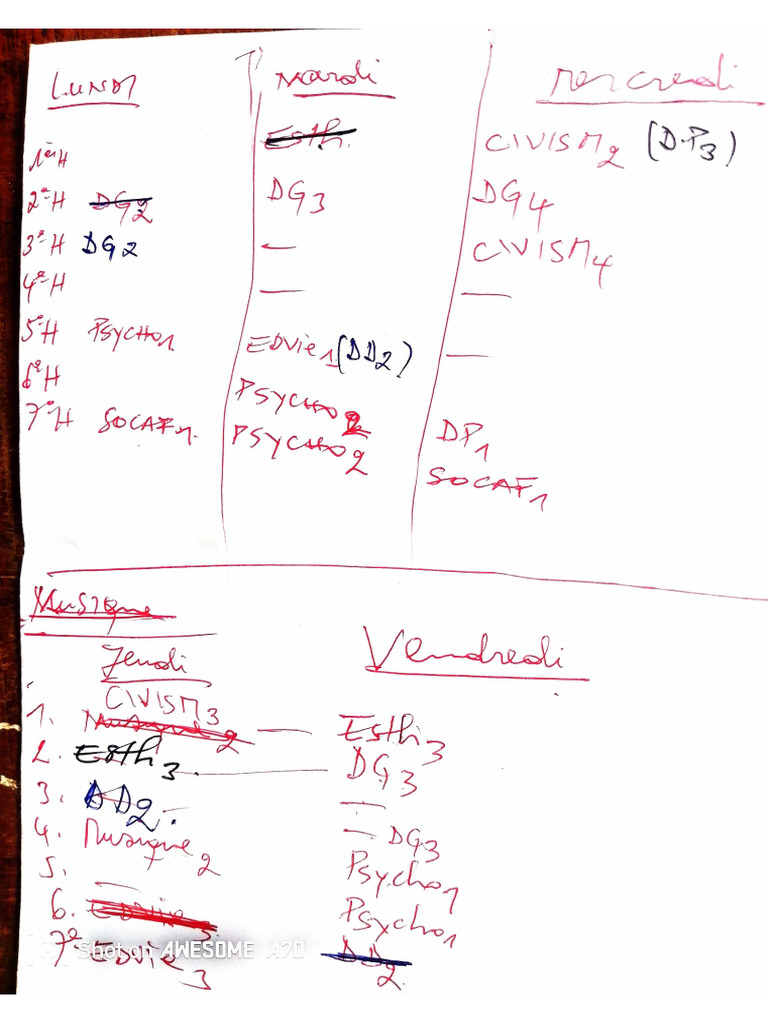 LUNDI
1ère H
2e H DG2
3e H DG2
4e H
5e H PSYCHO1
6e H
7e H SOCAF1
Mardi
Esth.
DG3
—
—
EDVie1 (DD2)
PSYCHO2
PSYCHO2
Mercredi
CIVISM2 (D.P3)
DG4
CIVISM4
—
—
DP1
SOCAF1
Musique
Jeudi
CIVISM3
1. Musique2 —
2. Esth3.
3. DD2.
4. Musique2
5. —
6. EDVie3
7e EDVie3
Vendredi
Esthi3
DG3
—
— DG3
Psycho1
Psycho1
DD2
Shot on AWESOME A70